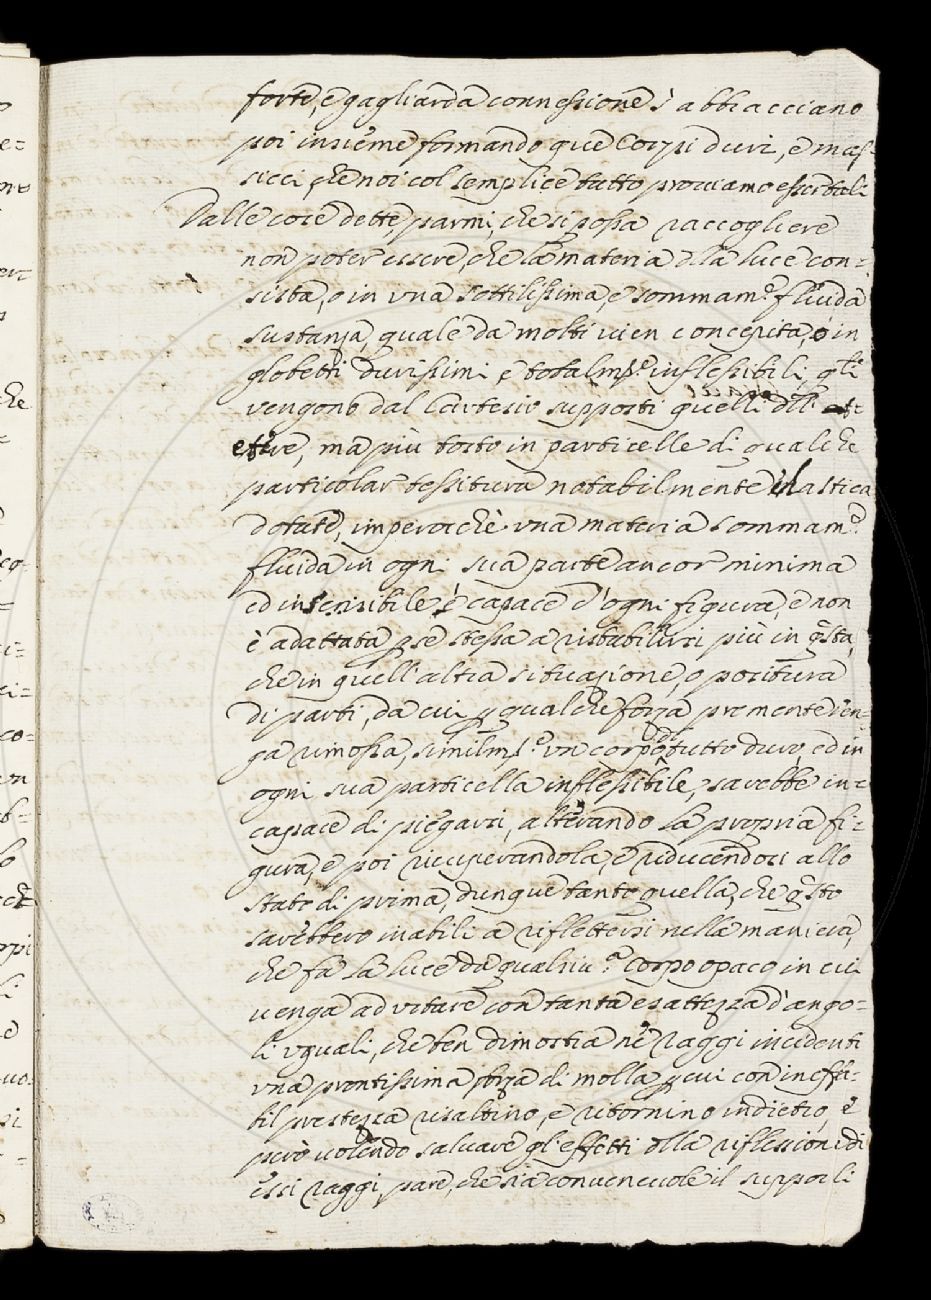 forte, e gagliarda connessione s'abbracciano
poi insieme formando que Corpi duri, e mas-
sicci che noi col semplice tatto proviamo esser tali
Dalle cose dette parmi, che si possa raccogliere
non poter essere, che la materia dlla luce con=
sista, o in vna sottilissima, e sommam.e fluida
sustanza, quale da molti vien concepita, o in
globetti durissimi e totalmte inflessibili, qli
vengono dal Cartesio supposti quelli dll
etere, ma più tosto in particelle di qualche
particolar tessitura notabilmente elastica
dotate, imperochè vna materia sommam.e
fluida in ogni sua parte ancor minima
ed insensibile è capace d'ogni figura, e non
è adattata p se stessa a ristabilirsi più in qsta,
che in quell'altra situazione, o positura
di parti, da cui p qualche forza premente ven=
ga rimossa, similmte vn corpo dl tutto duro, ed in
ogni sua particella inflessibile, sarebbe in=
capace di piegarsi, alterando la propria fi-
gura, e poi ricuperandola, e riducendosi allo
stato di prima, dunque tanto quella, che qsto
sarebbero inabili a riflettersi nella maniera,
che fà la luce da qualsiu.a Corpo opaco in cui
venga ad vrtare con tanta esattezza d'ango=
li vguali, che ben dimostra ne raggi incidenti
vna prontissima forza di molla p cui con ineffa-
bil prestezza risaltino, e ritornino indietro, e
però volendo salvare gl'effetti dlla riflessione di
essi raggi pare, che sia convenevole il suppor li